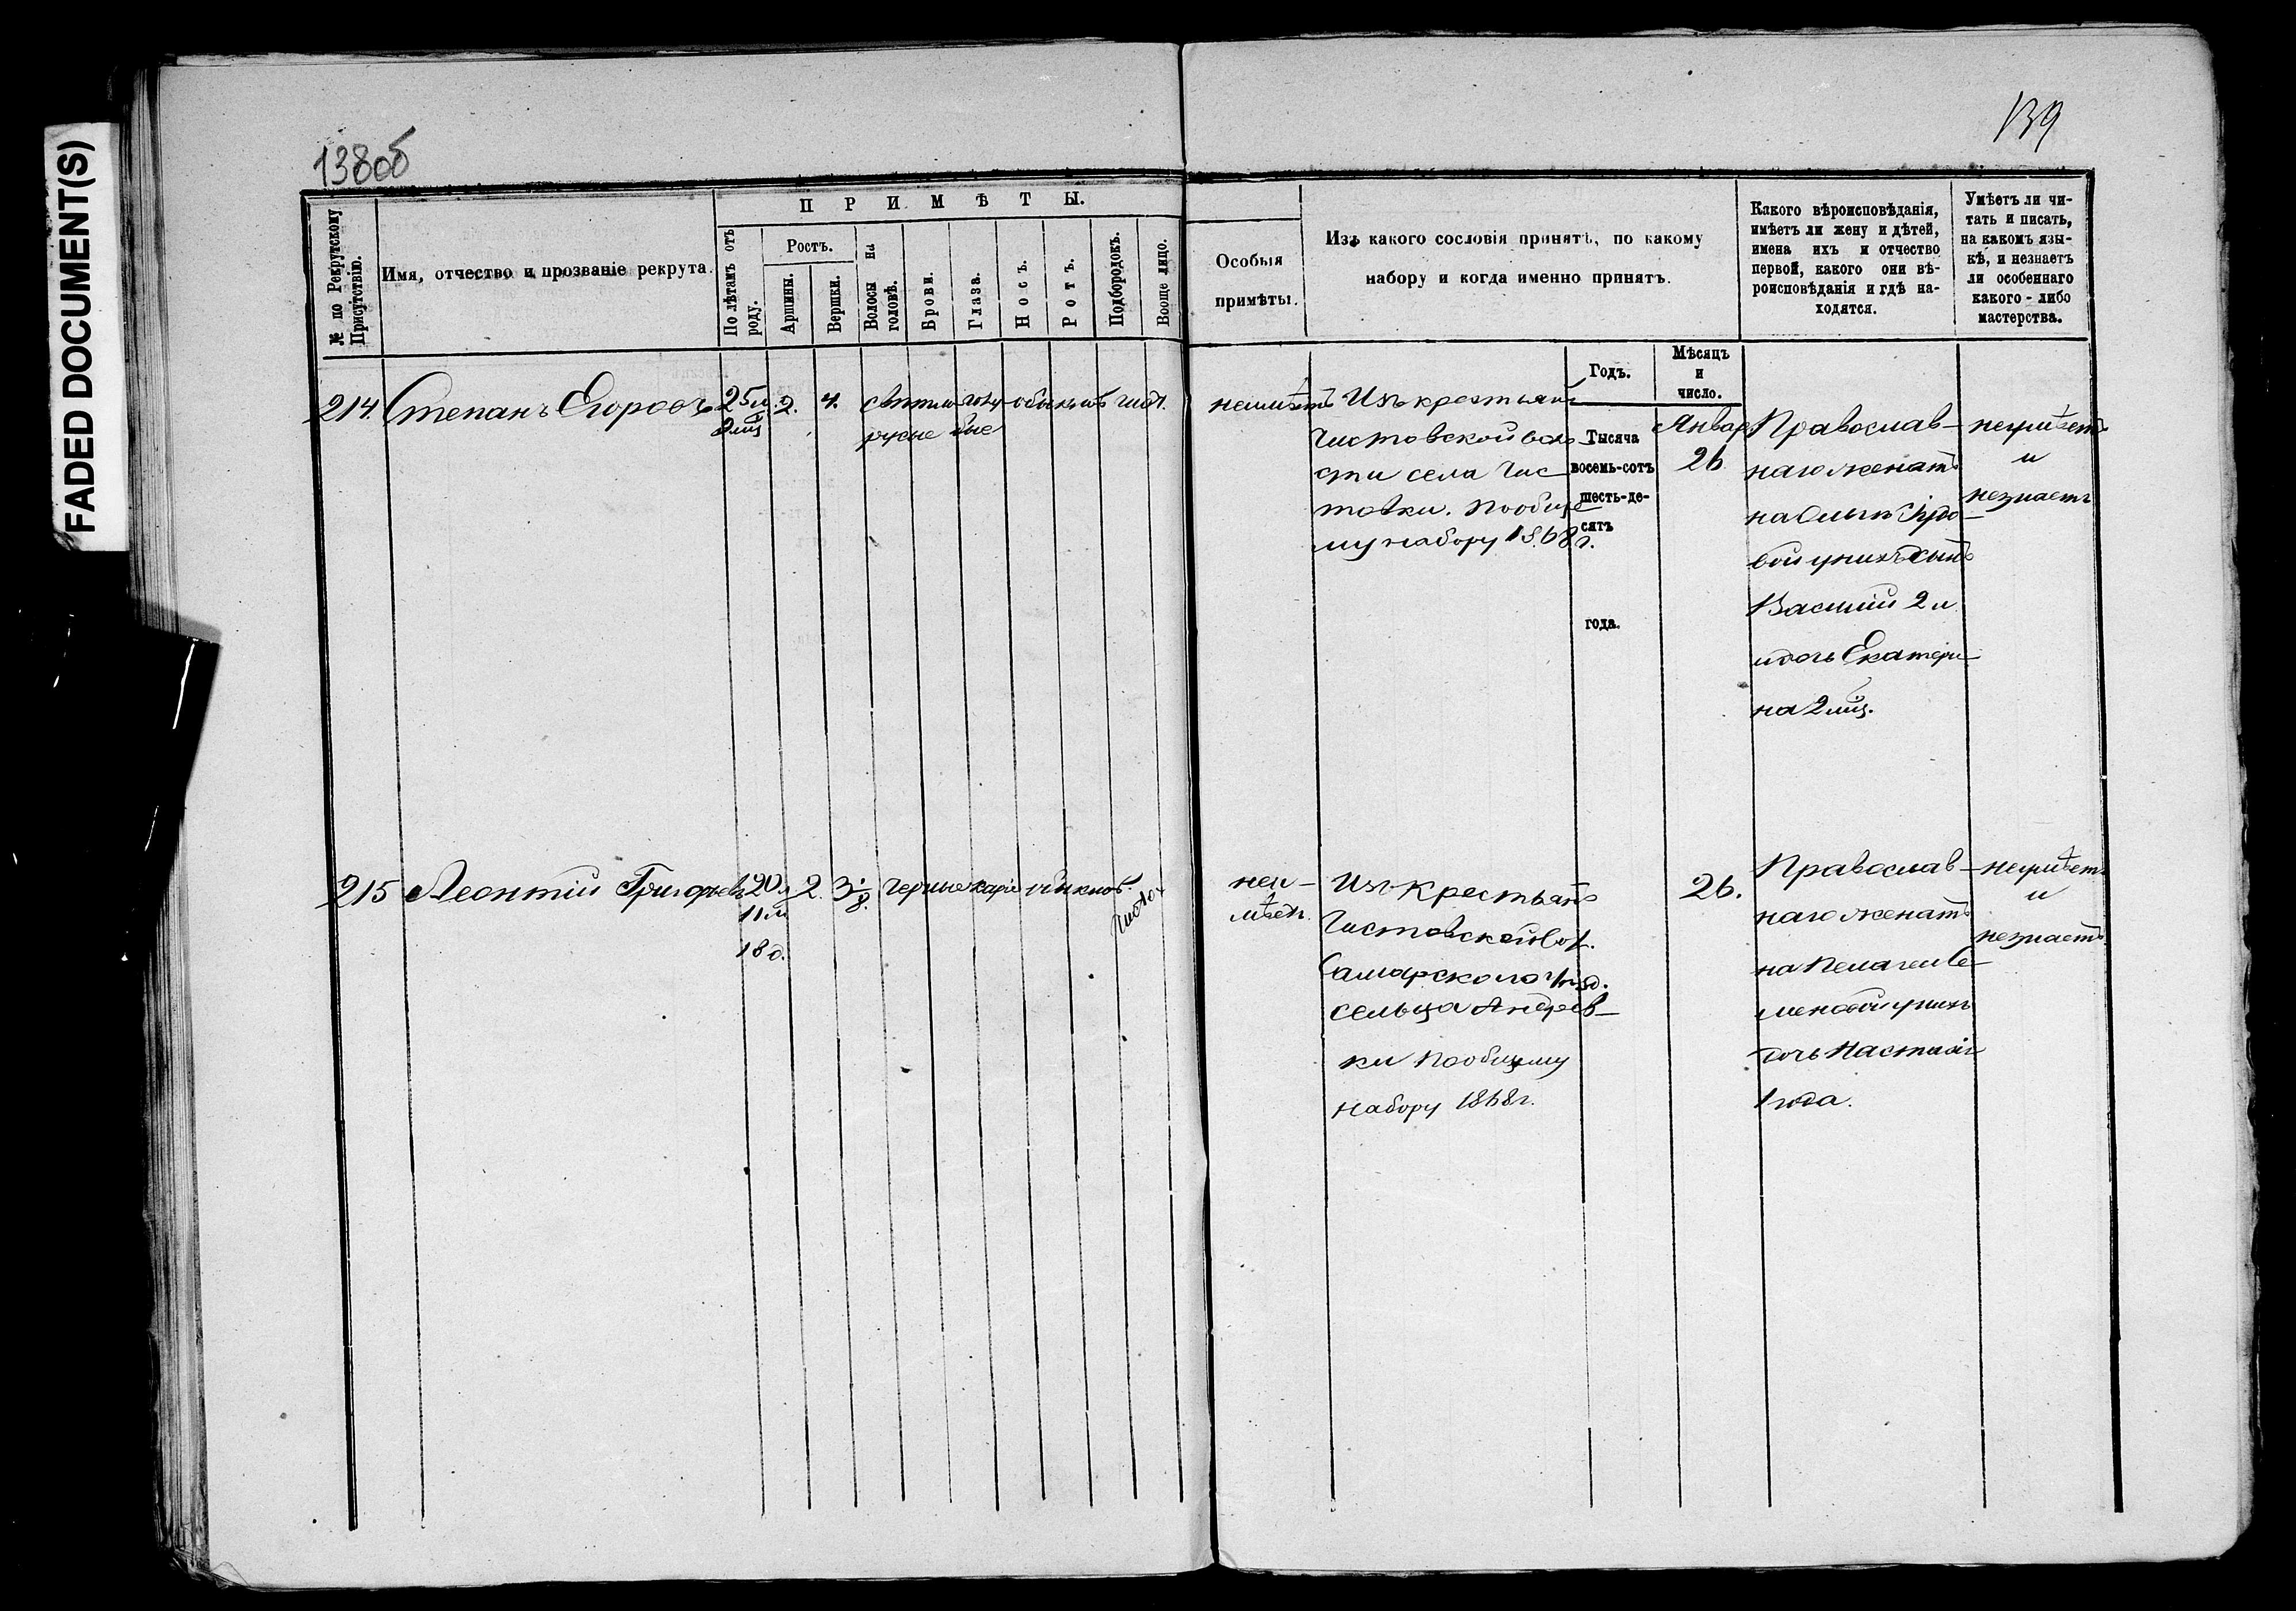 FADED DOCUMENT(S)
138об
139
№ по Рекрутскому Присутствію.
Имя, отчество и прозваніе рекрута.
ПРИМѢТЫ.
По лѣтамъ отъ роду.
Ростъ.
Аршины.
Вершки.
Волосы на головѣ.
Брови.
Глаза.
Носъ.
Ротъ.
Подбородокъ.
Вооще лицо.
Особыя
примѣты.
Изъ какого сословія принятъ, по какому
набору и когда именно принятъ.
Какого вѣроисповѣданія,
имѣетъ ли жену и дѣтей,
имена ихъ и отчество
первой, какого они вѣ-
роисповѣданія и гдѣ на-
ходятся.
Умѣетъ ли чи-
тать и писать,
на какомъ язы-
кѣ, и незнаетъ
ли особеннаго
какого-либо
мастерства.
Годъ.
Мѣсяцъ
и
число.
Тысяча
восемь-сотъ
шесть-де-
сятъ
года.
214. Степанъ Егоровъ
25 л
2 мц
2. 4.
свѣтло
русые
голу
бые
обыкнов чист.
неимѣетъ
Изъ крестьянъ
Чистовской воло
сти села Чис
товки. По обще
му набору 1868 г.
Январ
26
Православ-
наго женатъ
на
вой у нихъ сынъ
Василій 2 л
и дочь Екатери-
на 2 мц.
неумѣетъ
и
незнаетъ
215 Леонтій Григорьевъ
20 л
11 м
18 д.
2 3 1/8.
черные каріе обыкнов.
чистое
неи-
мѣетъ.
Изъ крестьянъ
Чистовской Вол.
Самарскаго Уѣзд.
сельца Андреев-
ки По общему
набору 1868 г.
26.
Православ-
наго женатъ
на Пелагеи Се-
меновой у нихъ
дочь Настасія
1 года.
неумѣетъ
и
незнаетъ.